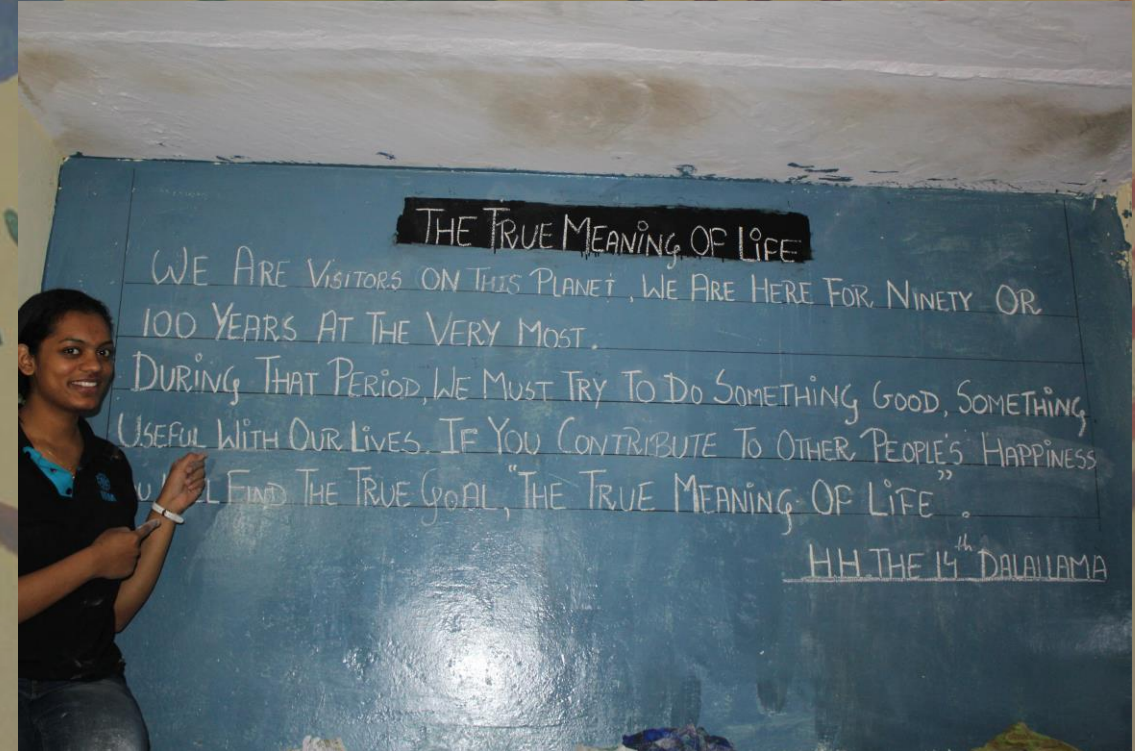 THE TRUE MEANING OF LIFE
WE ARE VISITORS ON THIS PLANET, WE ARE HERE FOR NINETY OR
100 YEARS AT THE VERY MOST.
DURING THAT PERIOD, WE MUST TRY TO DO SOMETHING GOOD, SOMETHING
USEFUL WITH OUR LIVES. IF YOU CONTRIBUTE TO OTHER PEOPLE'S HAPPINESS
FIND THE TRUE GOAL, "THE TRUE MEANING OF LIFE".
HH THE 14th DALAILAMA